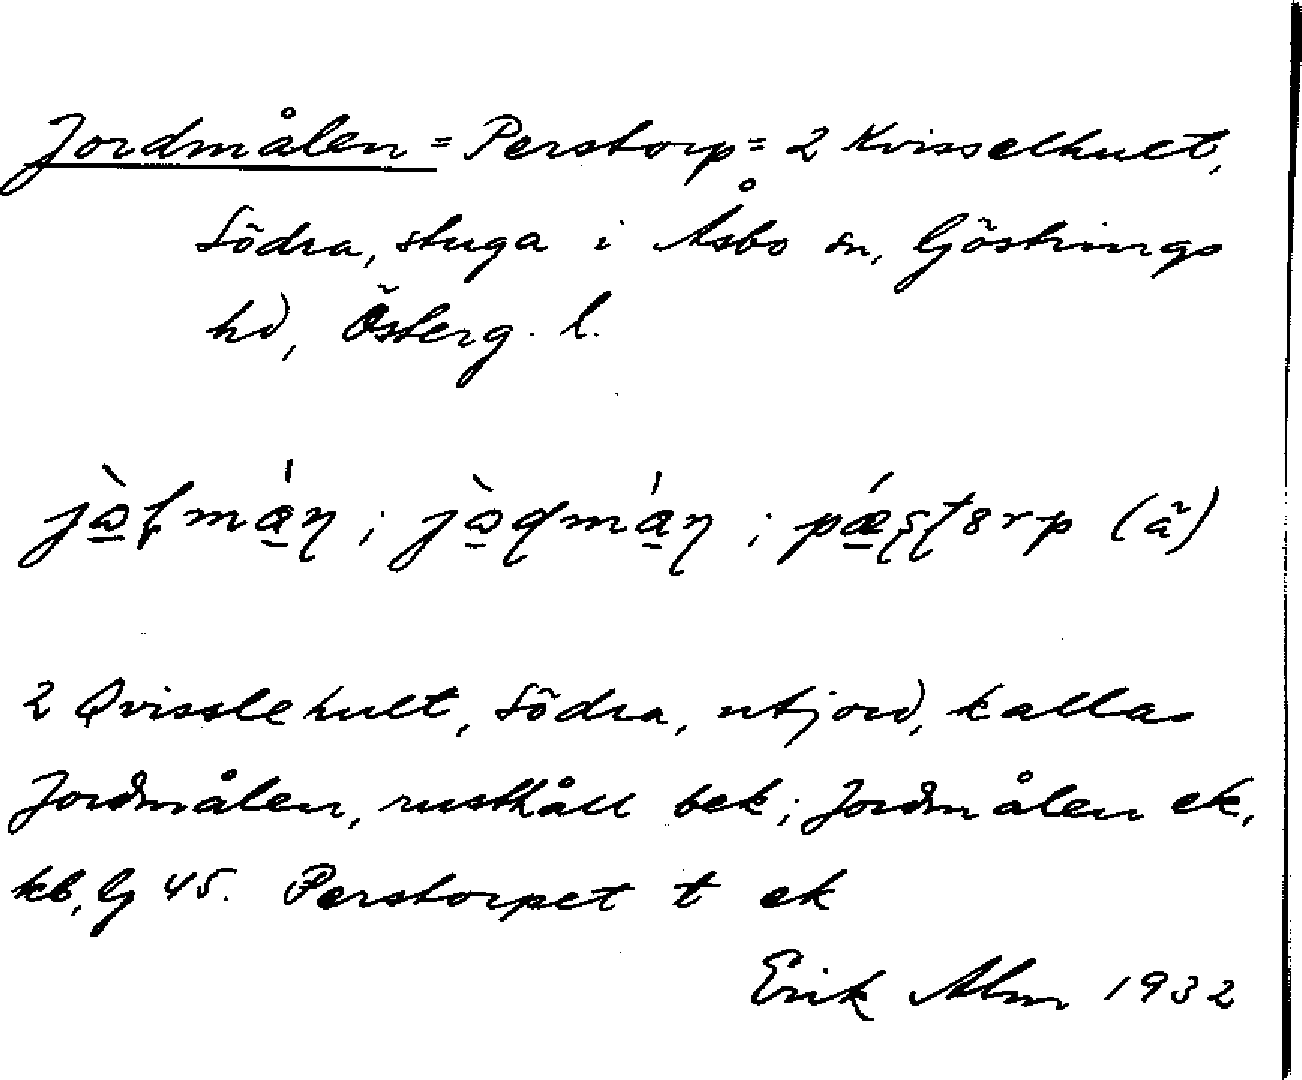 Jordmålen = Perstorp = 2 Kvisselhult,
Södra, stuga i Åsbo sn, Göstrings
hd, Österg. l.
2 Qvisslehult, Södra, utjord, kallas
Jordmålen, rusthåll bek; Jordmålen ek,
kb, G 45. Perstorpet t ek
Erik Alm 1932